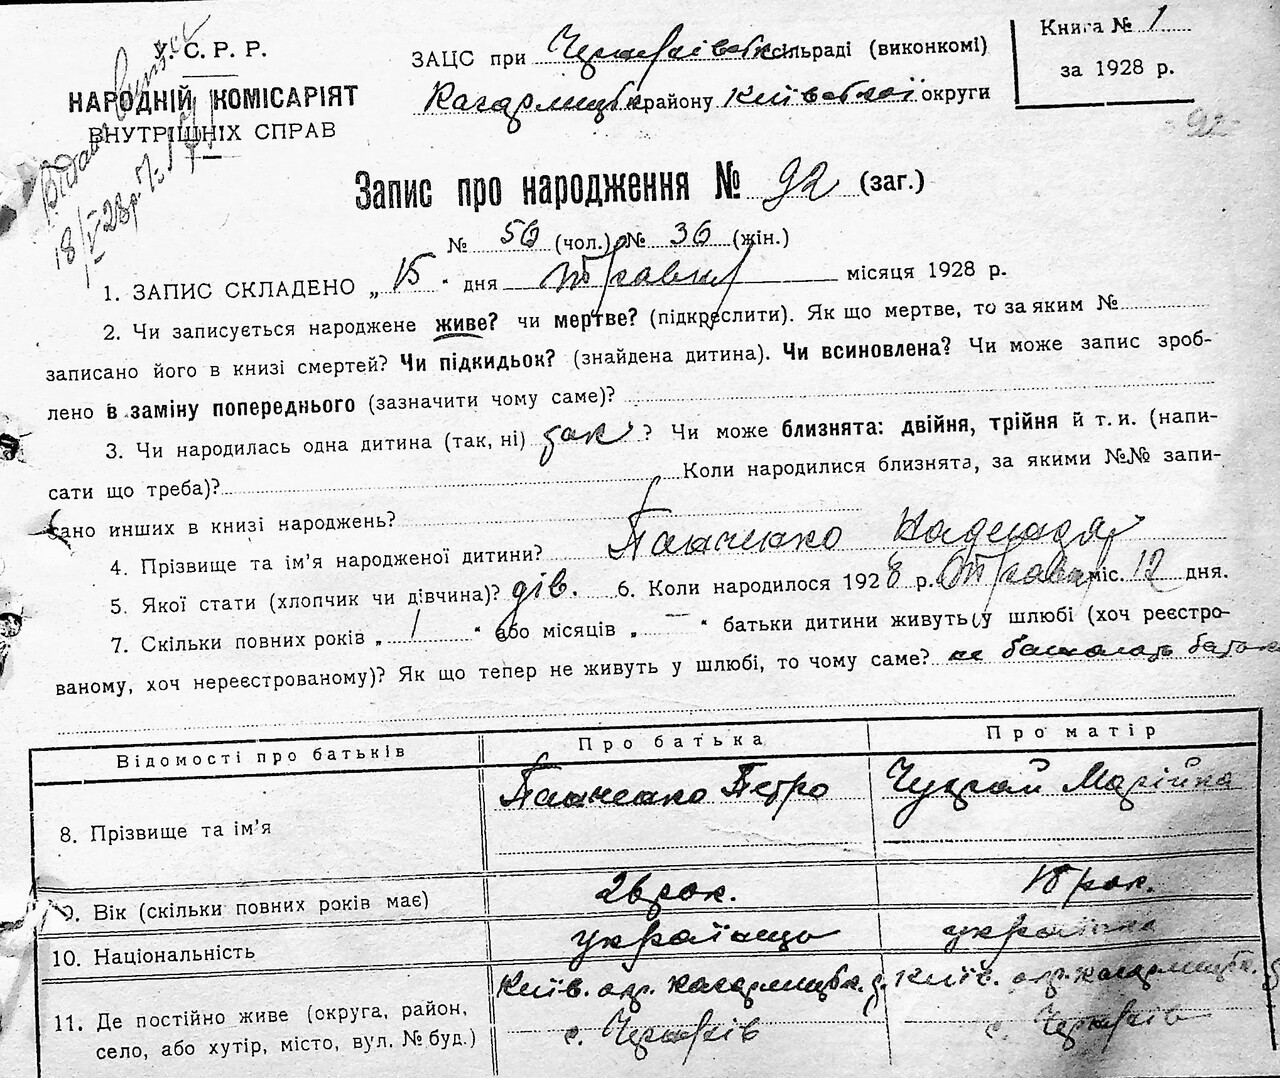 У. С. Р. Р.
НАРОДНІЙ КОМІСАРІЯТ
ВНУТРІШНІХ СПРАВ
18/V 28 р.
ЗАЦС при сільраді (виконкомі)
Кагарлицьк району Київської округи
Книга № 1
за 1928 р.
92
Запис про народження № 92 (заг.)
№ 56 (чол.) № 36 (жін.)
1. ЗАПИС СКЛАДЕНО „ 15 “ дня травня місяця 1928 р.
2. Чи записується народжене живе? чи мертве? (підкреслити). Як що мертве, то за яким №
записано його в книзі смертей? Чи підкидьок? (знайдена дитина). Чи всиновлена? Чи може запис зроб-
лено в заміну попереднього (зазначити чому саме)?
3. Чи народилась одна дитина (так, ні) так ? Чи може близнята: двійня, трійня й т. и. (напи-
сати що треба)? Коли народилися близнята, за якими №№ запи-
сано инших в книзі народжень?
4. Прізвище та ім’я народженої дитини? Панченко Надежда
5. Якої стати (хлопчик чи дівчина)? дів. 6. Коли народилося 1928 р. травня міс. 12 дня.
7. Скільки повних років „ 1 “ або місяців „ — “ батьки дитини живуть у шлюбі (хоч реєстро-
ваному, хоч нереєстрованому)? Як що тепер не живуть у шлюбі, то чому саме? не
Відомості про батьків Про батька Про матір
8. Прізвище та ім’я Панченко Петро Чухрай Марійка
9. Вік (скільки повних років має) 26 рок. рок.
10. Національність українець українка
11. Де постійно живе (округа, район, Київ. окр. Кагарлицьк. Київ. окр. Кагарлицьк.
село, або хутір, місто, вул. № буд.) с. с.